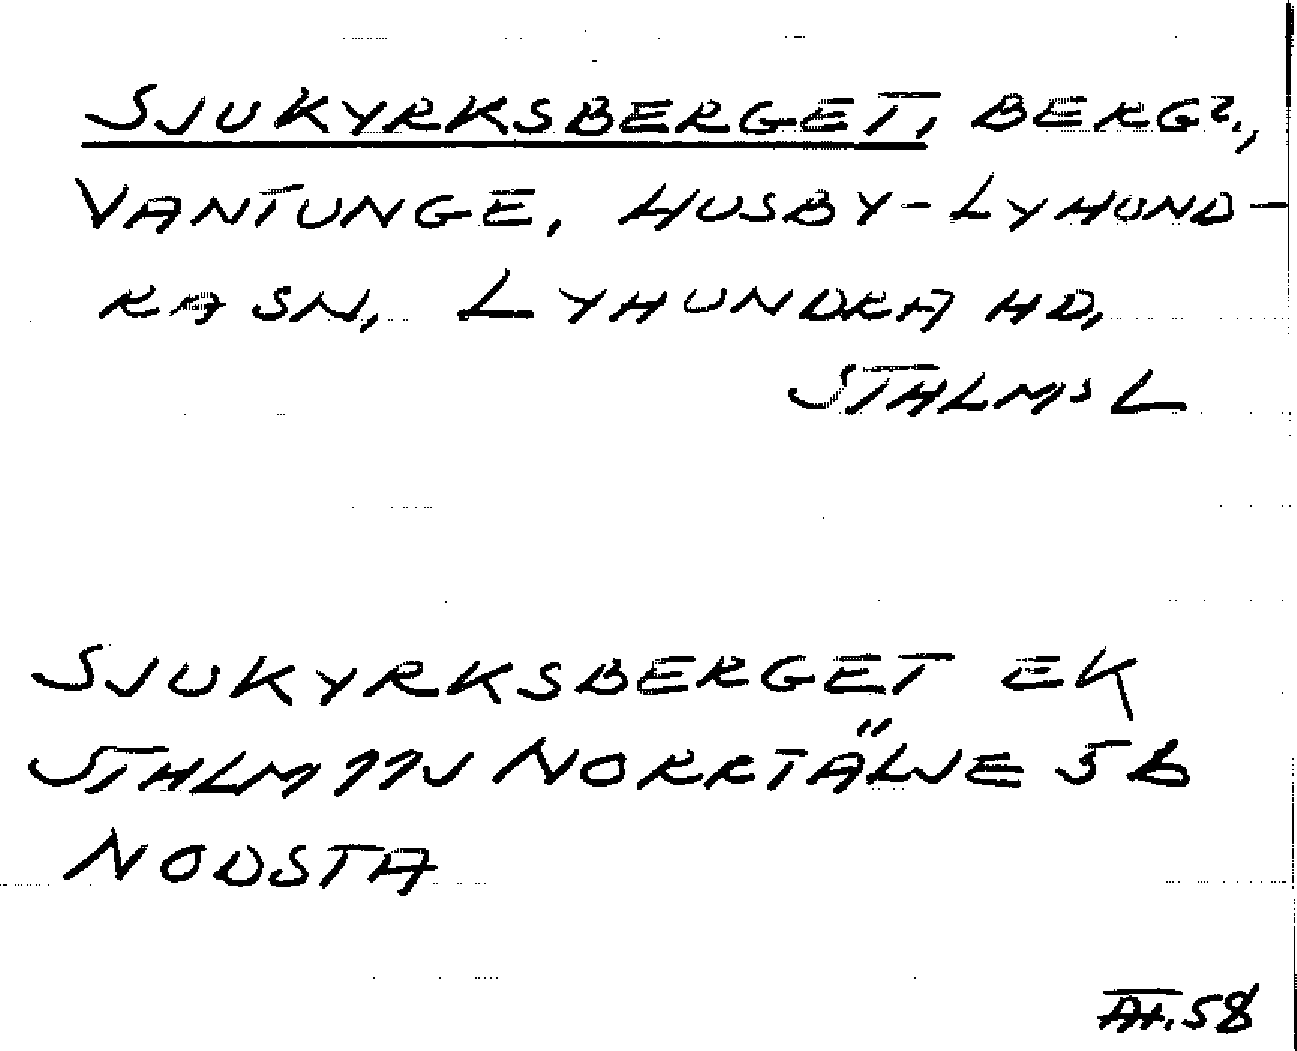 SJUKYRKSBERGET, BERG?,
VANTUNGE, HUSBY-LYHUND-
RA SN, LYHUNDRA HD,
STHLMS L
SJUKYRKSBERGET EK
STHLM 11J NORRTÄLJE 5B
NODSTA
58